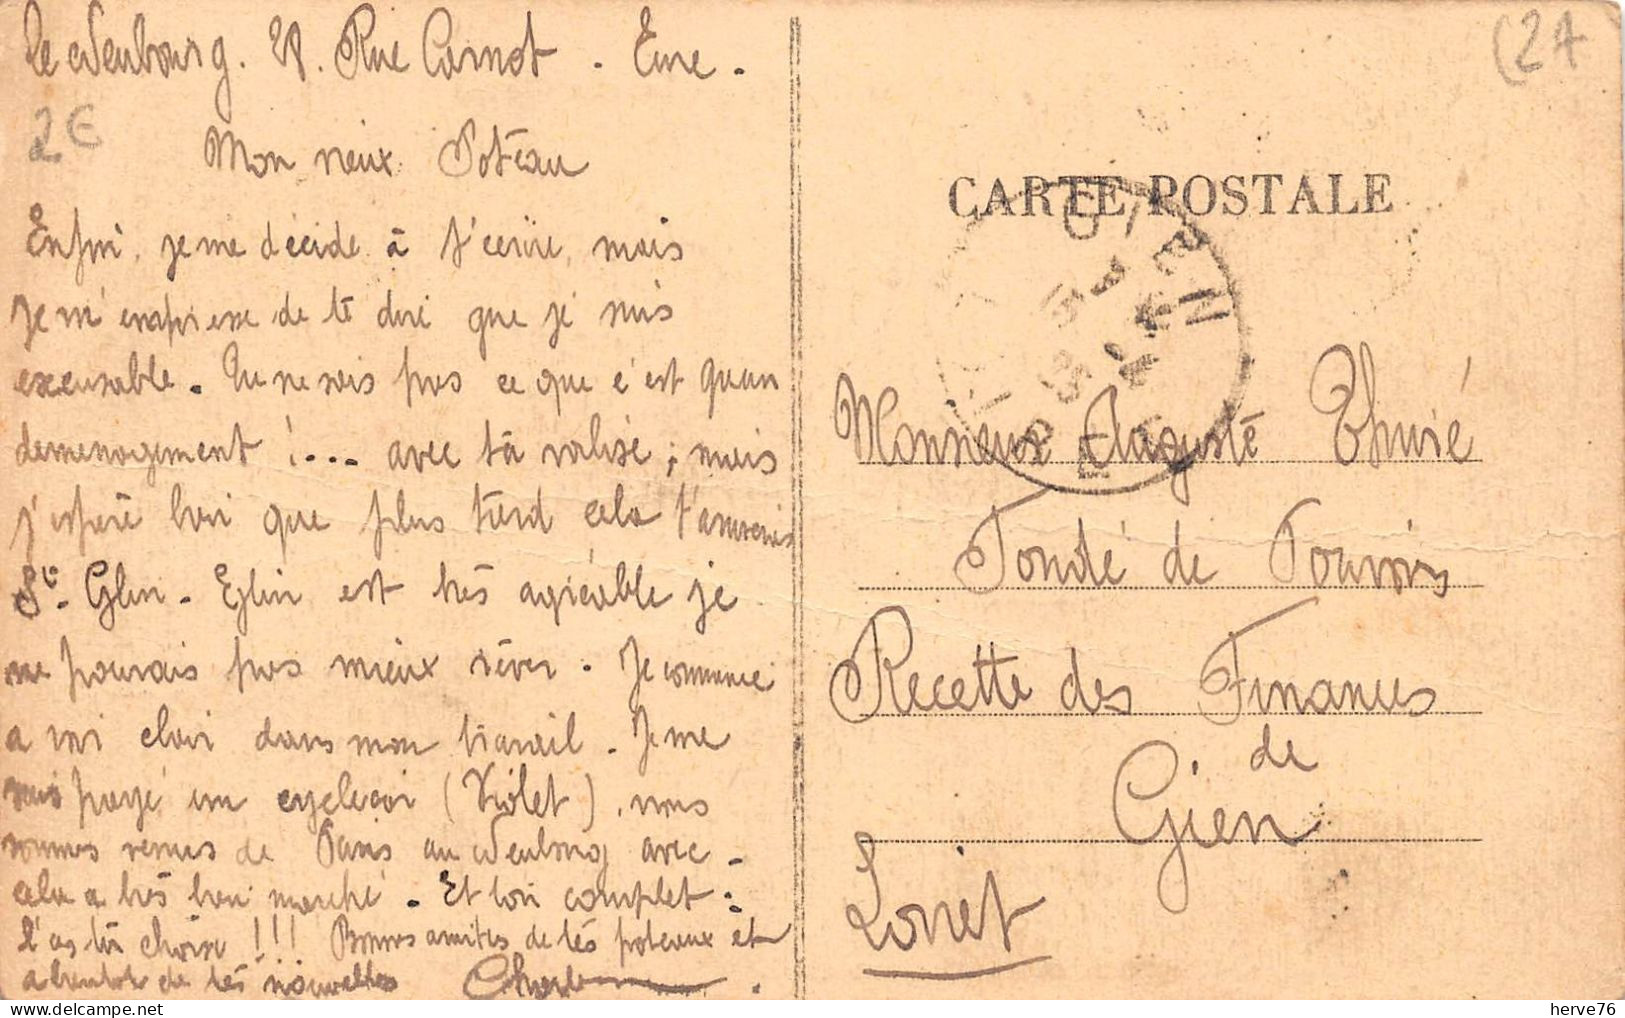 Le Neubourg. 28. Rue Carnot - Eure -
2€
Mon vieux Poteau
Enfin, je me décide à t'ecrire, mais
je m'empresse de te dire que je suis
excusable. Tu ne sais pas ce que c'est qu'un
demenagement !... avec ta valise ; mais
j'espère bien que plus tard cela
est très agréable je
ne pouvais pas mieux rêver. Je commence
a voir clair dans mon travail. Je me
suis payé un (Violet), nous
sommes venus de Paris au Neubourg avec -
cela a très bon marché. Et ton complet -
l'as tu choisi !!! Bonnes amities de tes poteaux et
a bientot de tes nouvelles
(2A
CARTE POSTALE
GIEN
Monsieur Auguste Thuvié
Fondé de Pouvoirs
Recette des Finances
de
Gien
Loiret
herve76